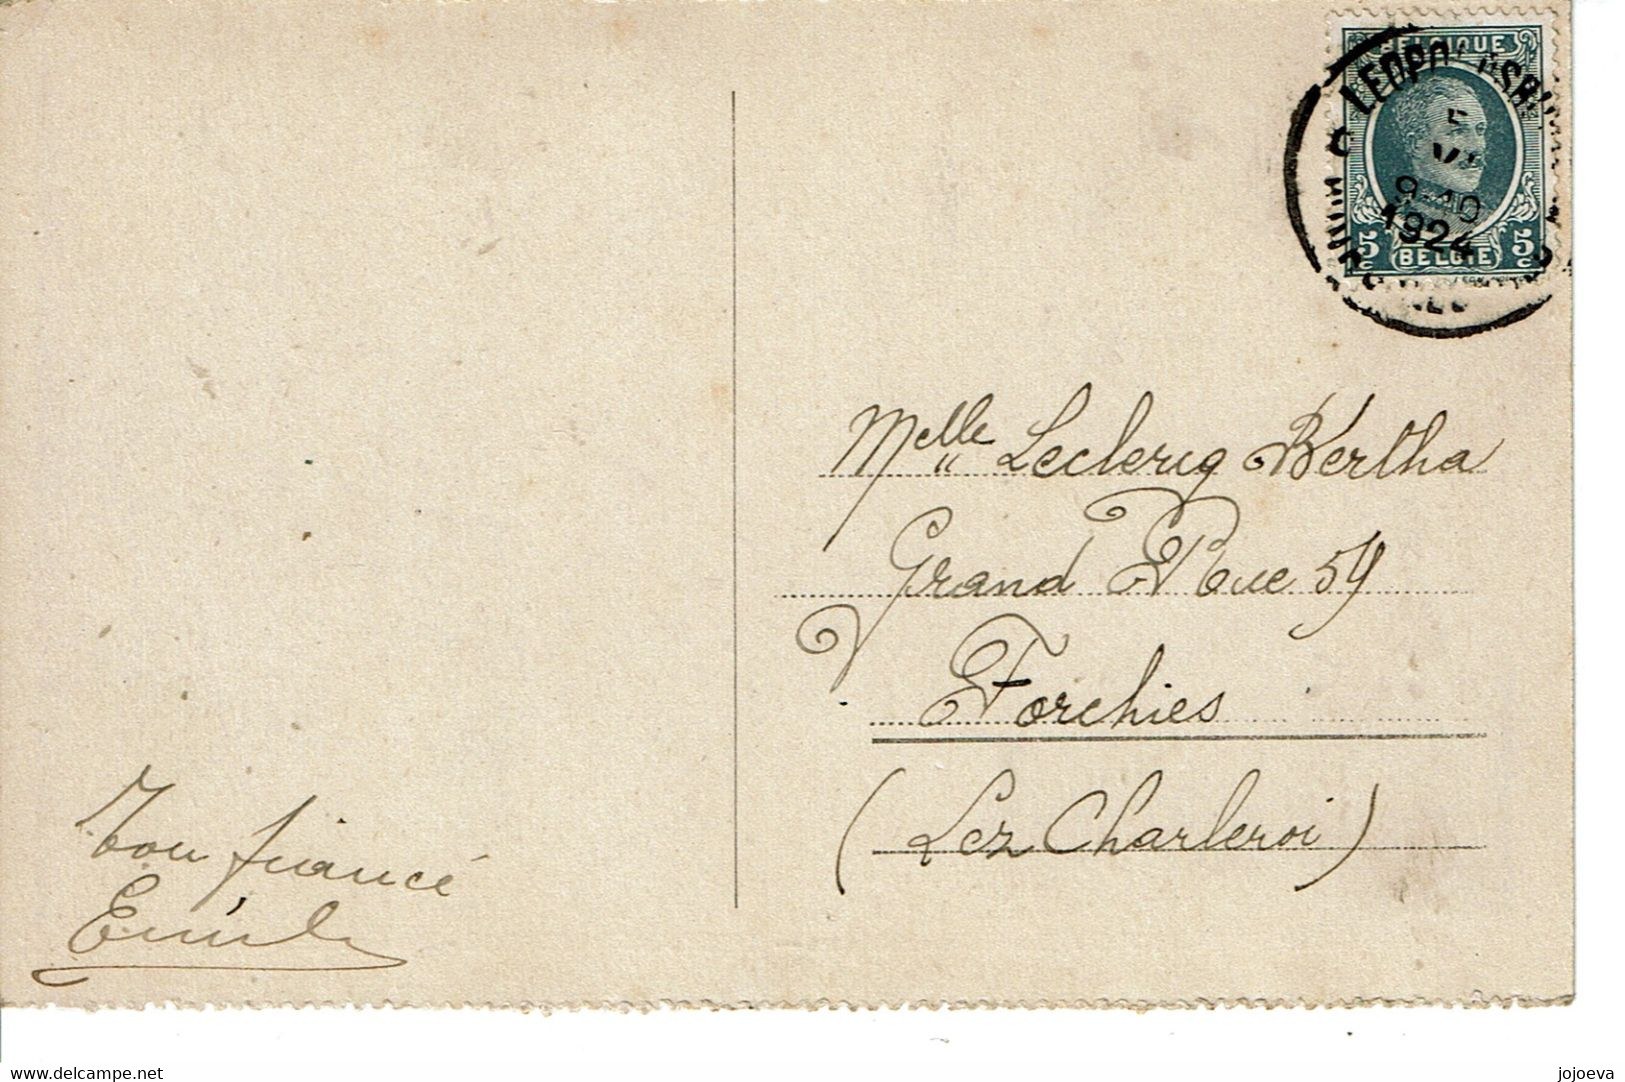 BELGIQUE
5
9-10
1924
5c BELGIË 5c
Melle Leclercq Bertha
Grand Rue 59
Forchies
(Lez Charleroi)
Ton fiancé
Emile
delcampe.net
jojoeva